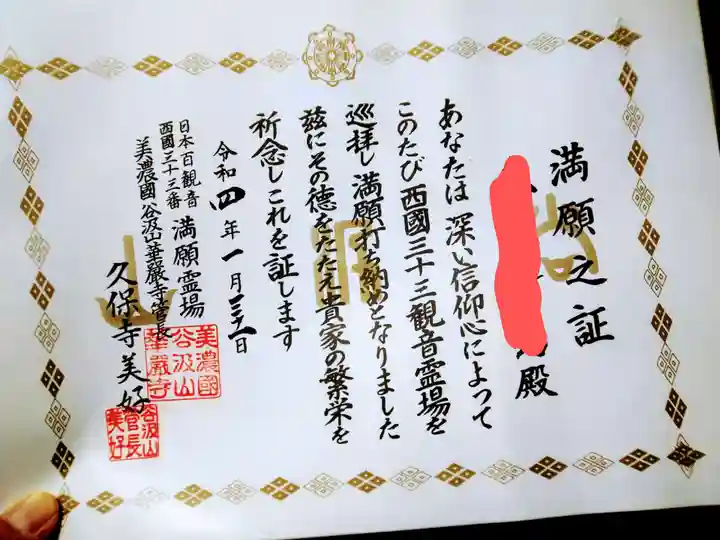 満願之証
殿
あなたは深い信仰心によって
このたび西國三十三観音霊場を
巡拝し満願打ち納めとなりました
茲にその徳をたたえ貴家の繁栄を
祈念しこれを証します
令和四年一月三日
日本百観音
西國三十三番
満願霊場
美濃國谷汲山華厳寺管長
久保寺美好
美濃國
谷汲山
華厳寺
谷汲山
管長
美好